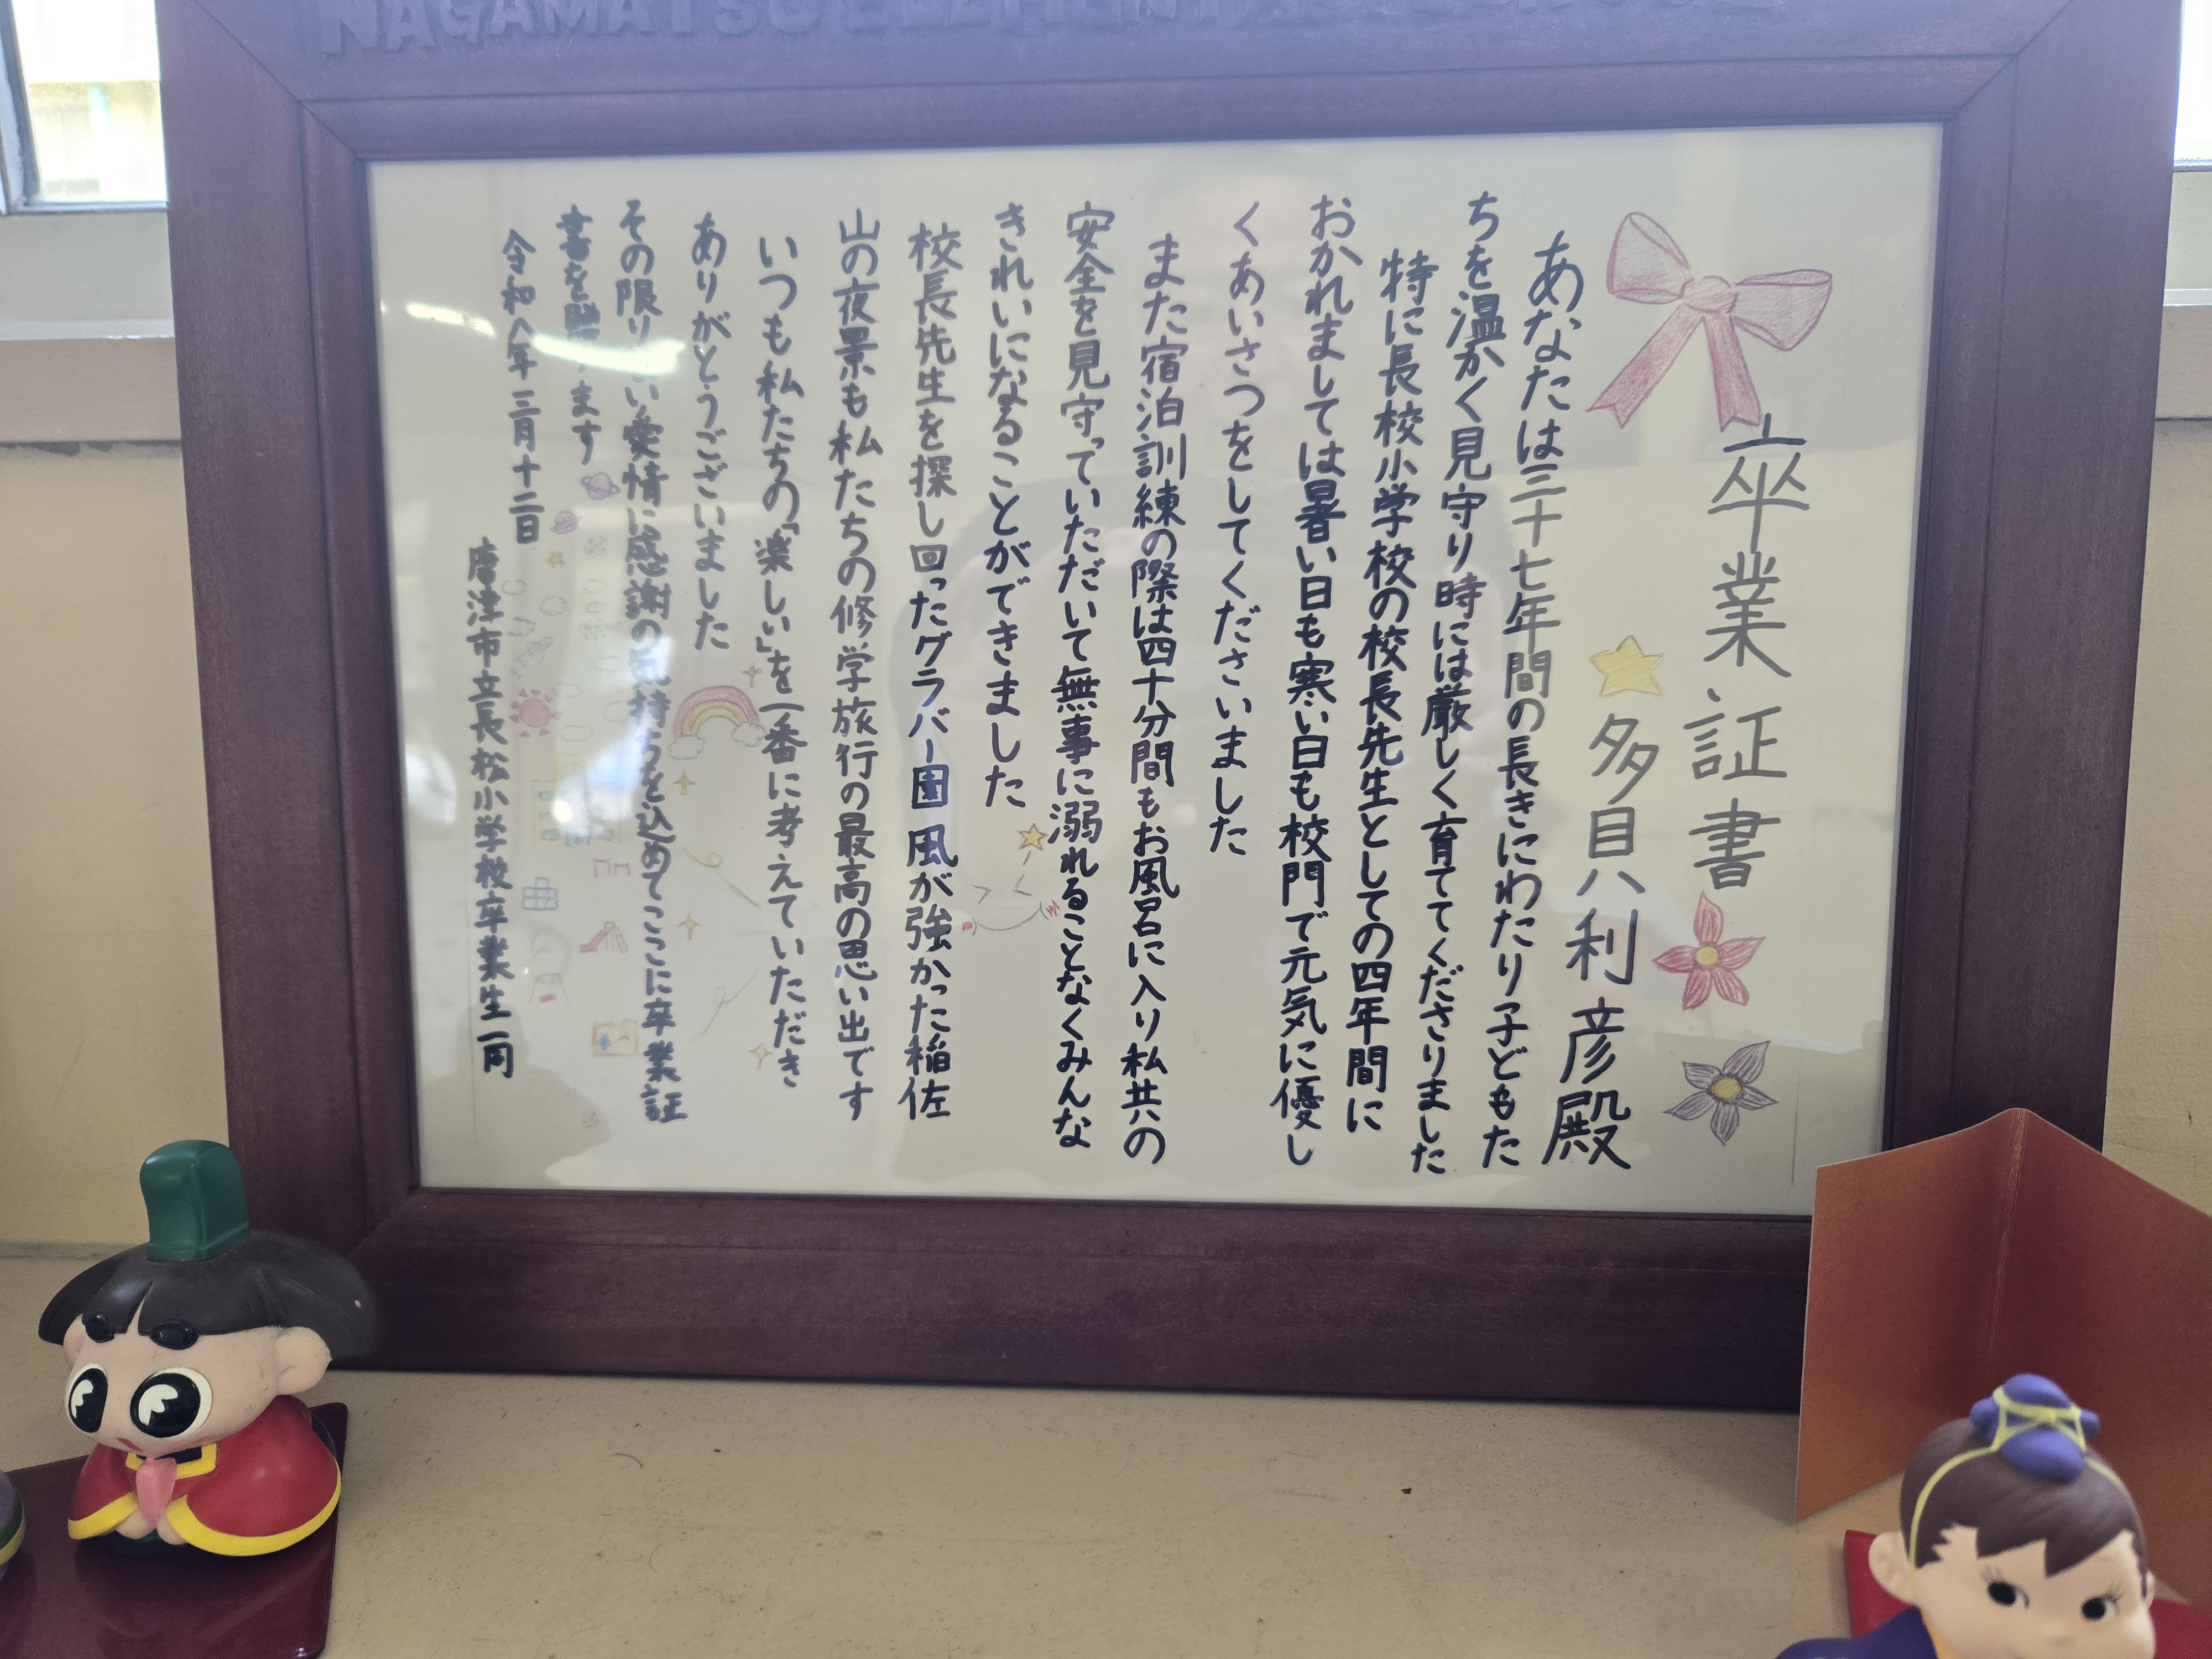 NAGAMATSU ELEMENTARY SCHOOL
卒業証書
多久利彦殿
あなたは三十七年間の長きにわたり子どもた
ちを温かく見守り時には厳しく育ててくださりました
特に長松小学校の校長先生としての四年間に
おかれましては暑い日も寒い日も校門で元気に優し
くあいさつをしてくださいました
また宿泊訓練の際は四十分間もお風呂に入り私共の
安全を見守っていただいて無事に溺れることなくみんな
きれいになることができました
校長先生を探し回ったグラバー園 風が強かった稲佐
山の夜景も私たちの修学旅行の最高の思い出です
いつも私たちの「楽しい」を一番に考えていただき
ありがとうございました
その限りない愛情に感謝の気持ちを込めてここに卒業証
書を贈ります
令和八年三月十二日
唐津市立長松小学校卒業生一同